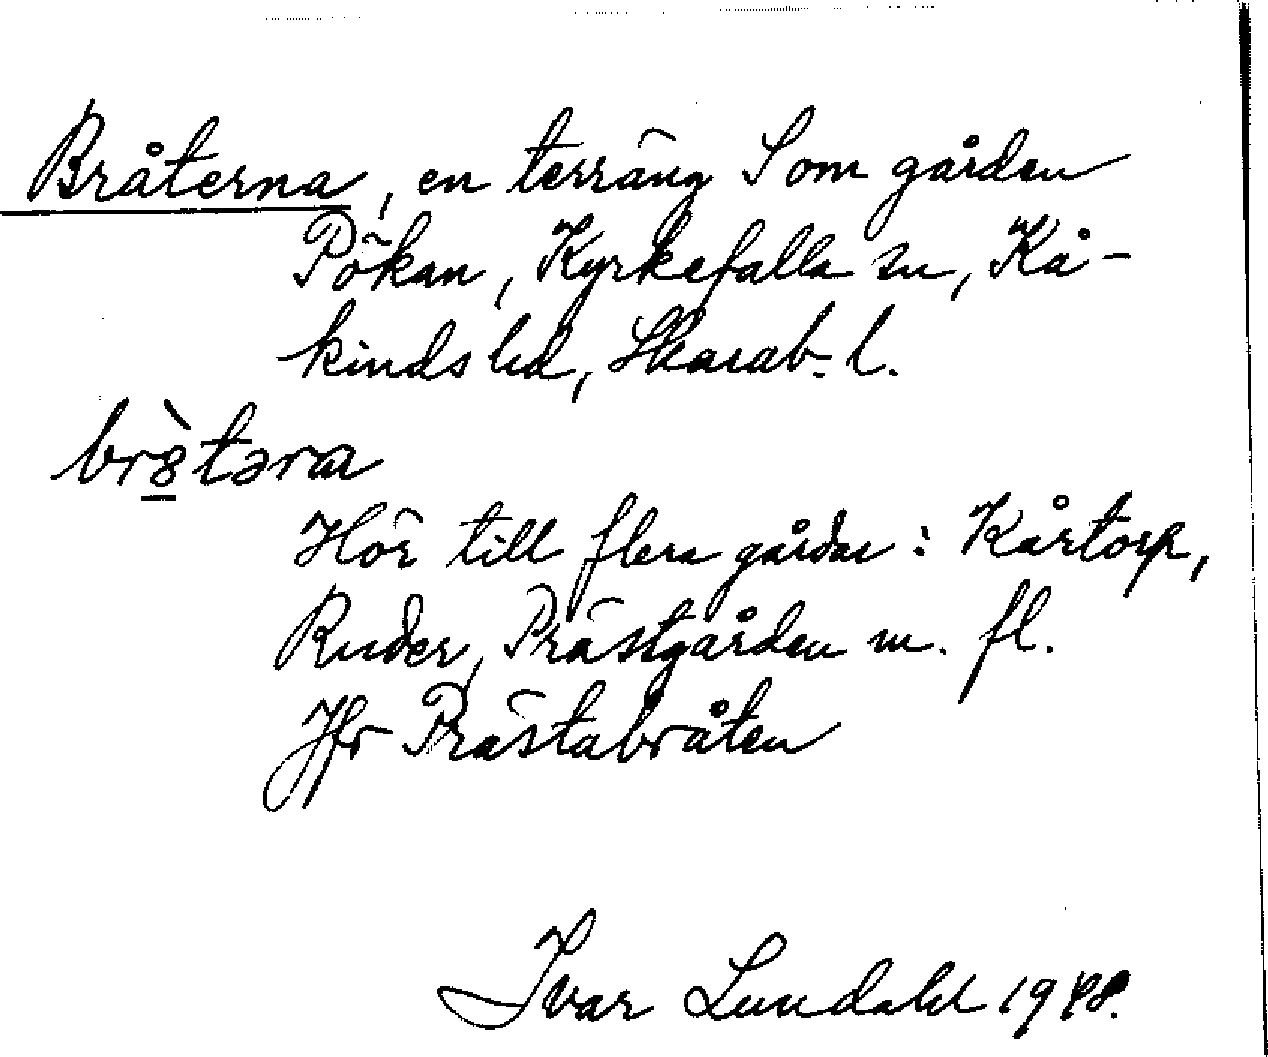 Bråterna, en terräng S om gården
Pökan, Kyrkefalla sn, Kå-
kinds hd, Skarab. l.
br8̠̀təra
Hör till flera gårdar: Kårtorp,
Ruder, Prästgården m. fl.
Jfr Prästabråten
Ivar Lundahl 1948.